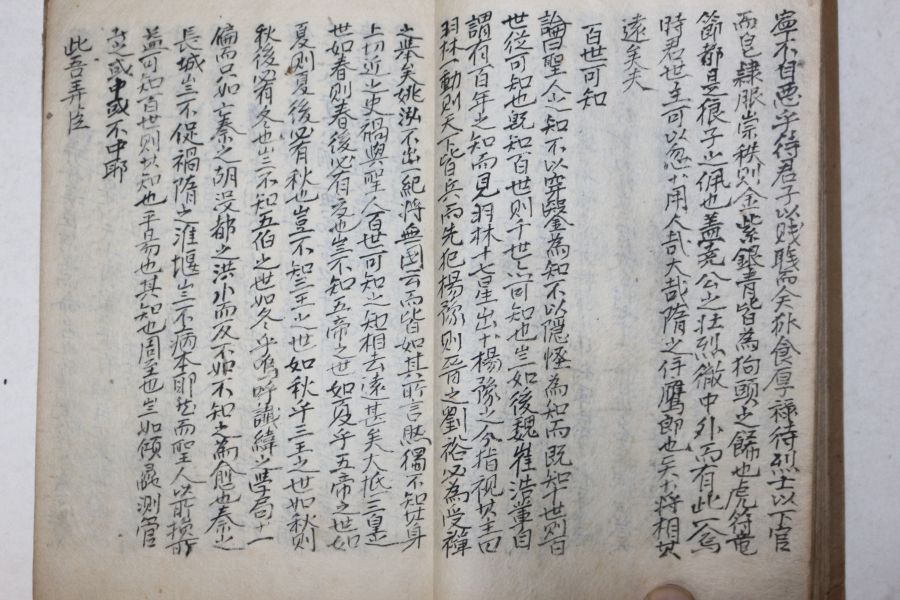 寧不自惡乎待君子以賤賤而矢狄食厚祿待烈士以下官
而皂隷服崇秩則金紫銀青皆為狗頭之餙也虎符竜
節都是狼子之佩也盖亮公之狂烈徹中外而有此為
時君世主可以忽於用人哉大哉隋之侍鷹郎也矢將相其
遠矣夫
百世可知
論曰聖人之知不以穿鑿為知不以隱怪為知而既知十世則百
世從可知也既知百世則千世亦可知也豈如後魏崔浩輩自
謂有百年之知而見羽林十七星出於楊豫之分指視其主曰
羽林一動則天下皆兵而先犯楊豫則晋之劉裕必為受禪
之擧矣姚泓不出一紀將無國云而皆如其所言然獨不知其身
上切近之史禍與聖人百世可知之知相去遠甚矣大抵三皇之
世如春則春後必有夏也豈不知五帝之世如夏乎五帝之世如
夏則夏後必有秋也豈不知三王之世如秋乎三王之世如秋則
秋後必有冬也豈不知五伯之世如冬乎嗚呼讖緯之學局于一
偏而只如亡秦之胡沒都之洪水而反不如不知之為愈也秦之
長城豈不促禍隋之淮堰豈不病本耶然而聖人以所損所
益可知百世則其知也平易也其知也周全也豈如傾蠡測管
之或中或不中耶
此吾弄臣